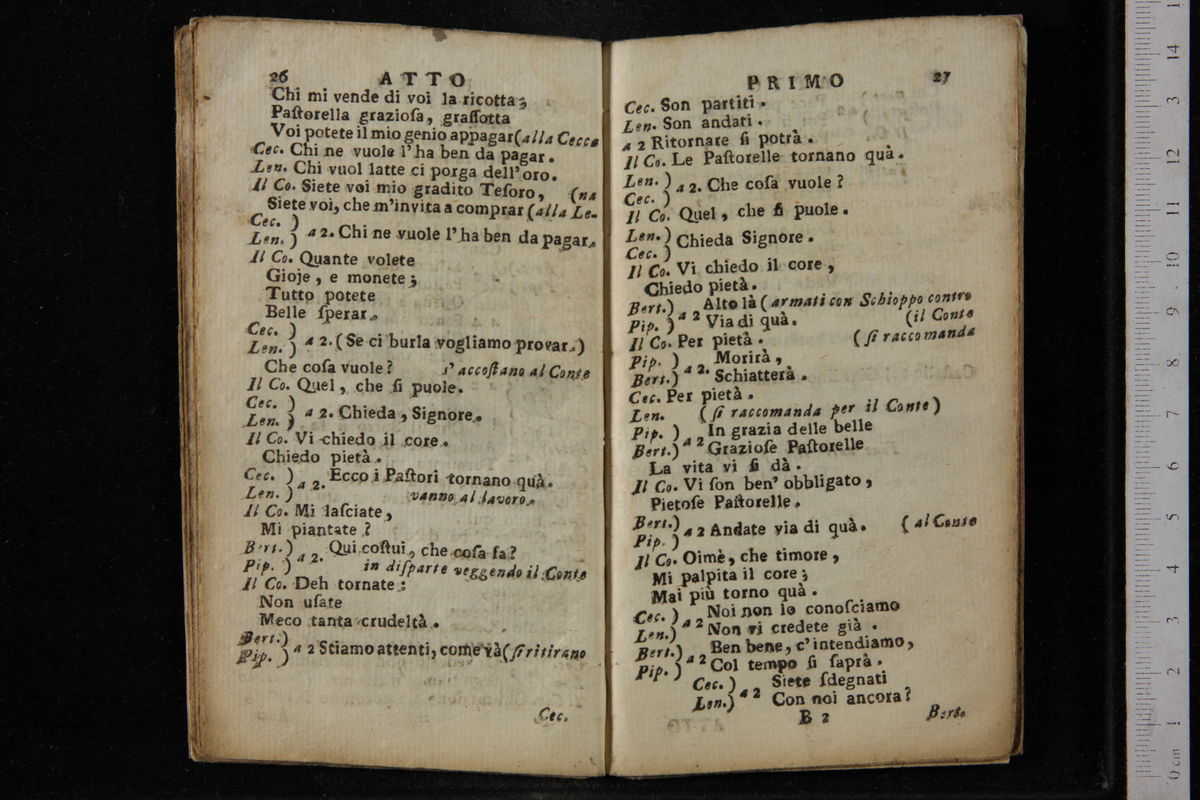 26 ATTO
Chi mi vende di voi la ricotta;
Paſtorella grazioſa, graſſotta
Voi potete il mio genio appagar (alla Cecca
Cec. Chi ne vuole l'ha ben da pagar.
Len. Chi vuol latte ci porga dell'oro.
Il Co. Siete voi mio gradito Teſoro, (na
Siete voi, che m'invita a comprar (alla Le-
Cec. )
Len. ) a 2. Chi ne vuole l'ha ben da pagar.
Il Co. Quante volete
Gioje, e monete;
Tutto potete
Belle ſperar.
Cec. )
Len. ) a 2. (Se ci burla vogliamo provar.)
Che coſa vuole? s'accoſtano al Conte
Il Co. Quel, che ſi puole.
Cec. )
Len. ) a 2. Chieda, Signore.
Il Co. Vi chiedo il core.
Chiedo pietà.
Cec. ) a 2. Ecco i Paſtori tornano quà.
Len. ) vanno al lavoro.
Il Co. Mi laſciate,
Mi piantate?
Bert.) a 2. Qui coſtui, che coſa fa?
Pip. ) in diſparte veggendo il Conte
Il Co. Deh tornate:
Non uſate
Meco tanta crudeltà.
Bert.)
Pip. ) a 2 Stiamo attenti, come và (ſi ritirano
Cec.
PRIMO 27
Cec. Son partiti.
Len. Son andati.
a 2 Ritornare ſi potrà.
Il Co. Le Paſtorelle tornano quà.
Len. ) a 2. Che coſa vuole?
Cec. )
Il Co. Quel, che ſi puole.
Len.) Chieda Signore.
Cec. )
Il Co. Vi chiedo il core,
Chiedo pietà.
Bert.) a 2 Alto là (armati con Schioppo contro
Pip. ) Via di quà. (il Conte
Il Co. Per pietà. (ſi raccomanda
Pip. ) a 2. Morirà,
Bert.) Schiatterà.
Cec. Per pietà.
Len. (ſi raccomanda per il Conte)
Pip. ) a 2 In grazia delle belle
Bert.) Grazioſe Paſtorelle
La vita vi ſi dà.
Il Co. Vi ſon ben' obbligato,
Pietoſe Paſtorelle.
Bert.) a 2 Andate via di quà. (al Conte
Pip. )
Il Co. Oimè, che timore,
Mi palpita il core;
Mai più torno quà.
Cec. ) a 2 Noi non lo conoſciamo
Len.) Non vi credete già.
Bert.) a 2 Ben bene, c'intendiamo,
Pip.) Col tempo ſi ſaprà.
Cec. ) a 2 Siete ſdegnati
Len.) Con noi ancora?
B 2 Bert.